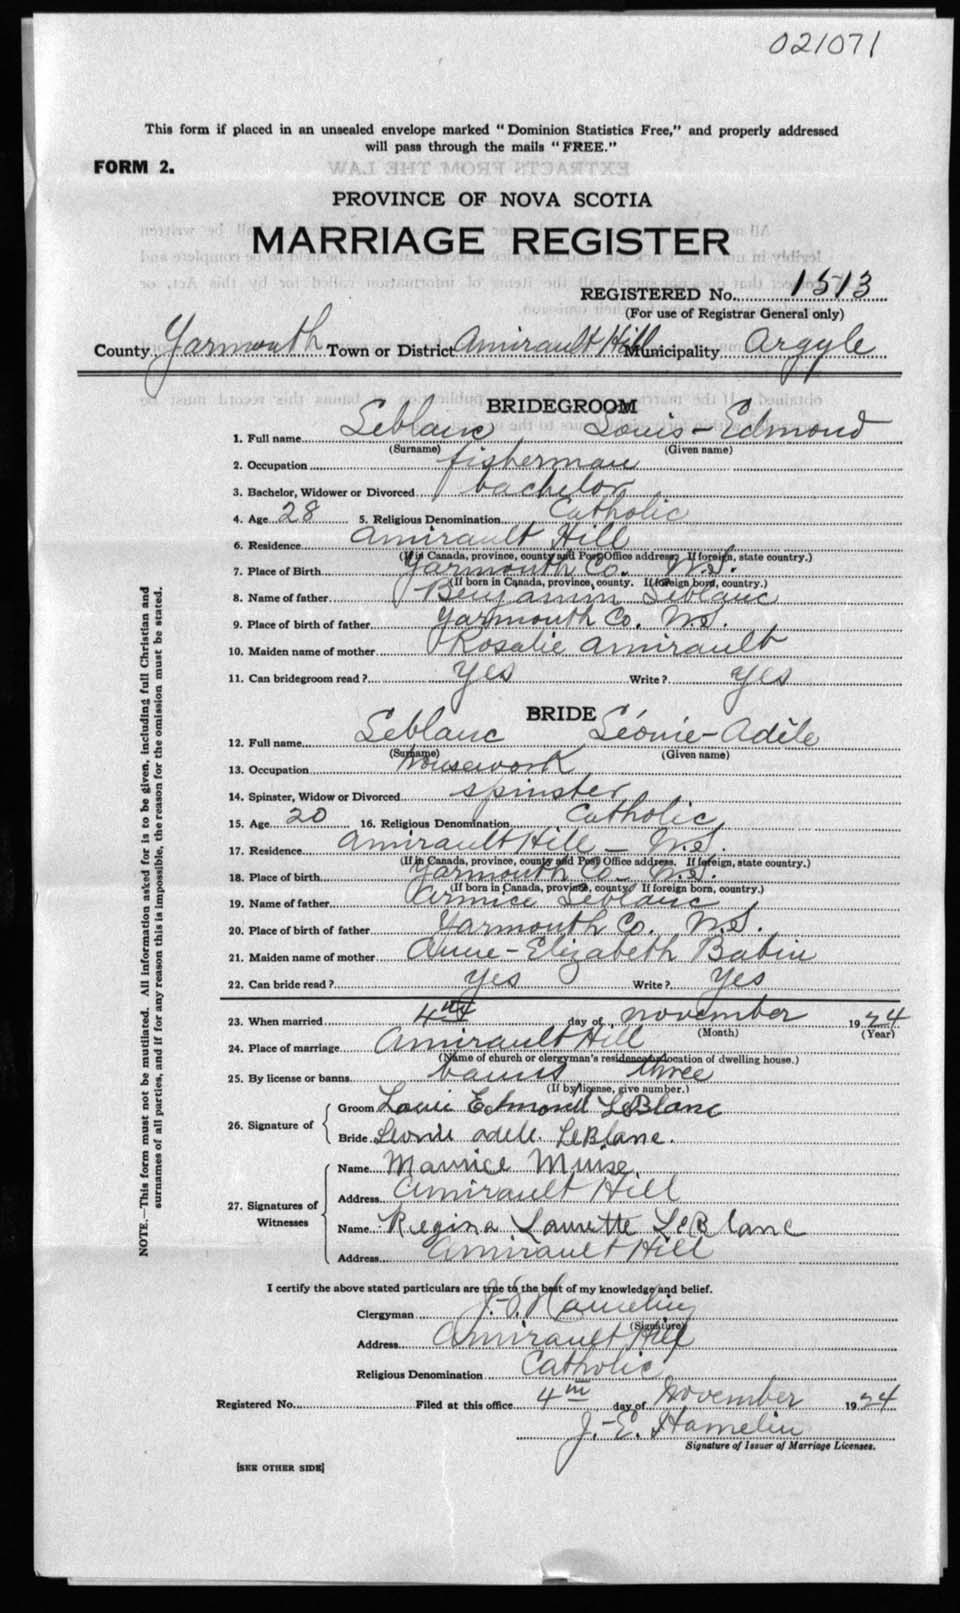 021071
This form if placed in an unsealed envelope marked "Dominion Statistics Free," and properly addressed
will pass through the mails "FREE."
FORM 2.
PROVINCE OF NOVA SCOTIA
MARRIAGE REGISTER
REGISTERED No. 1513
(For use of Registrar General only)
County Yarmouth Town or District Amirault Hill Municipality Argyle
BRIDEGROOM
1. Full name Leblanc Louis-Edmond
(Surname) (Given name)
2. Occupation fisherman
3. Bachelor, Widower or Divorced bachelor
4. Age 28 5. Religious Denomination Catholic
6. Residence Amirault Hill
(If in Canada, province, county and Post Office address. If foreign, state country.)
7. Place of Birth Yarmouth Co. N.S.
(If born in Canada, province, county. If foreign born, country.)
8. Name of father Benjamin Leblanc
9. Place of birth of father Yarmouth Co. N.S.
10. Maiden name of mother Rosalie Amirault
11. Can bridegroom read? Yes Write? Yes
BRIDE
12. Full name Leblanc Léonie-Adèle
(Surname) (Given name)
13. Occupation Housework
14. Spinster, Widow or Divorced spinster
15. Age 20 16. Religious Denomination Catholic
17. Residence Amirault Hill - N.S.
(If in Canada, province, county and Post Office address. If foreign, state country.)
18. Place of birth Yarmouth Co- N.S.
(If born in Canada, province, county. If foreign born, country.)
19. Name of father Leblanc
20. Place of birth of father Yarmouth Co. N.S.
21. Maiden name of mother Anne-Elizabeth Babin
22. Can bride read? Yes Write? Yes
23. When married 4th day of november 1924
(Month) (Year)
24. Place of marriage Amirault Hill
(Name of church or clergyman's residence or location of dwelling house.)
25. By license or banns banns three
(If by license, give number.)
26. Signature of
Groom Louie Edmond LeBlanc
Bride Leonie adele LeBlanc.
27. Signatures of Witnesses
Name Maurice Muise
Address Amirault Hill
Name Regina Laurette LeBlanc
Address Amirault Hill
I certify the above stated particulars are true to the best of my knowledge and belief.
Clergyman J.-E. Hamelin
(Signature)
Address Amirault Hill
Religious Denomination Catholic
Registered No. Filed at this office 4th day of November 1924
J.-E. Hamelin
Signature of Issuer of Marriage Licenses.
[SEE OTHER SIDE]
NOTE.—This form must not be mutilated. All information asked for is to be given, including full Christian and
surnames of all parties, and if for any reason this is impossible, the reason for the omission must be stated.